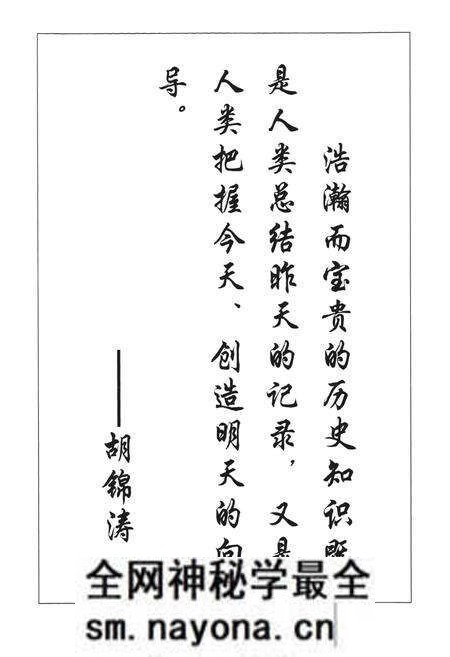 浩瀚而宝贵的历史知识既
是人类总结昨天的记录，又是
人类把握今天、创造明天的向
导。
——胡锦涛
全网神秘学最全
sm.nayona.cn